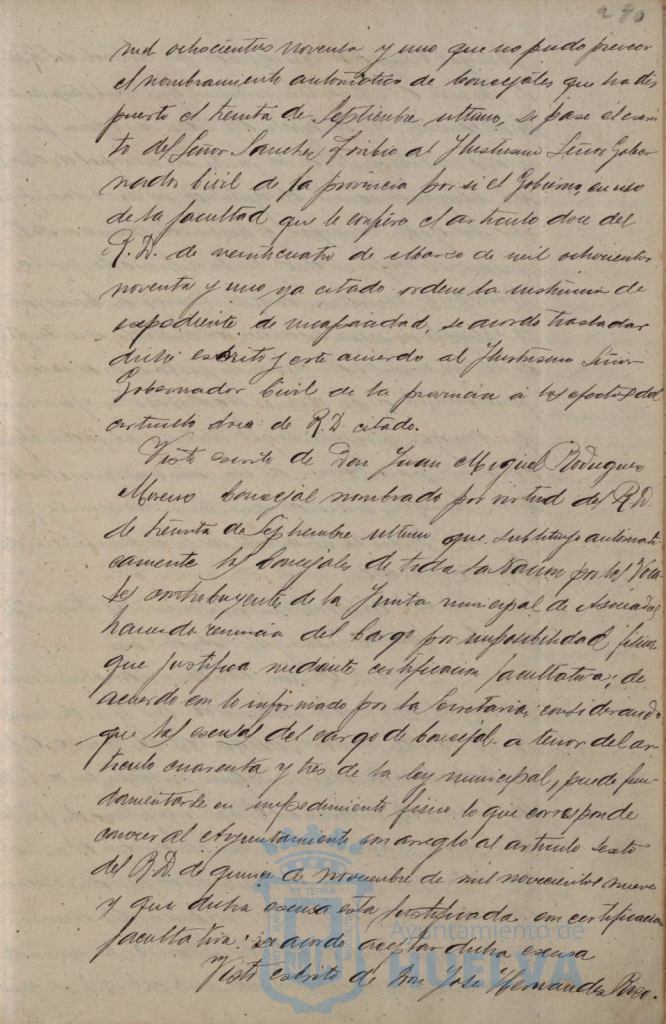 290
mil ochocientos noventa y uno que no pudo preveer
el nombramiento automático de Concejales que ha dis
puesto el treinta de Septiembre ultimo, se pase el escri
to del Señor Sanchez Toribio al Ilustrisimo Señor Gober
nador Civil de la provincia por si el Gobierno, en uso
de la facultad que le confiere el articulo doce del
R. D. de veinticuatro de Marzo de mil ochocientos
noventa y uno ya citado ordene la instrucción de
expediente de incapacidad, se acordo trasladar
dicho escrito y este acuerdo al Ilustrisimo Señor
Gobernador Civil de la provincia a los efectos del
articulo doce de R. D. citado.
Visto escrito de Don Juan Miguel Rodriguez
Moreno Concejal nombrado por virtud del R. D.
de treinta de Septiembre ultimo que substituyo automati
camente los Concejales de toda la Nacion por los Voca
les contribuyentes de la Junta municipal de Asociados
haciendo renuncia del Cargo por imposibilidad fisica
que justifica mediante certificacion facultativa; de
acuerdo con lo informado por la Secretaria; considerando
que las excusas del cargo de Concejal a tenor del ar
ticulo cuarenta y tres de la ley municipal, puede fun-
damentarse en impedimento fisico lo que corresponde
conocer al Ayuntamiento con arreglo al articulo sexto
del R. D. de quince de Noviembre de mil novecientos nueve
y que dicha excusa esta justificada con certificacion
facultativa: se acordo aceptar dicha excusa
Visto escrito de Don José Hernandez
Ayuntamiento de
HUELVA